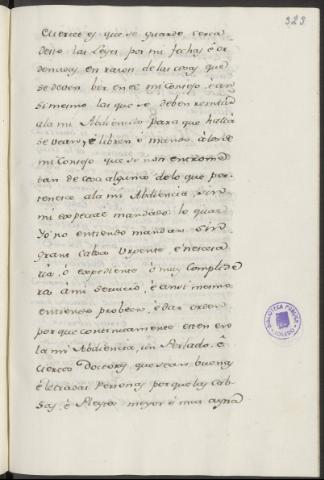 323
cuerdo es que se guarde cerca
desto las Leyes por mi fechas é or
denadas en razon de las cosas que
se deven ber en el mi Consejo, é an
si mesmo las que se deben remitir
a la mi Abdiencia para que halla
se vean, é libren é mando á los de
mi Consejo que se non entrome
tan de cosa alguna de lo que per
tenesce a la mi Abdiencia, sin
mi especial mandado lo qual
Yo non entiendo mandar sin
gran cabsa Urgente, é nescesa
ria, ó expediente ó muy complide
ra á mi servicio, é ansi mesmo
entiendo probeer, é dar orden
por que continuamente esten en
la mi Abdiencia, un Perlado é
ciertos Doctores, que sean buenas
é letradas Personas porque las Cab
sas, é Pleytos mejor é mas ayna
BIBLIOTECA PUBLICA
TOLEDO